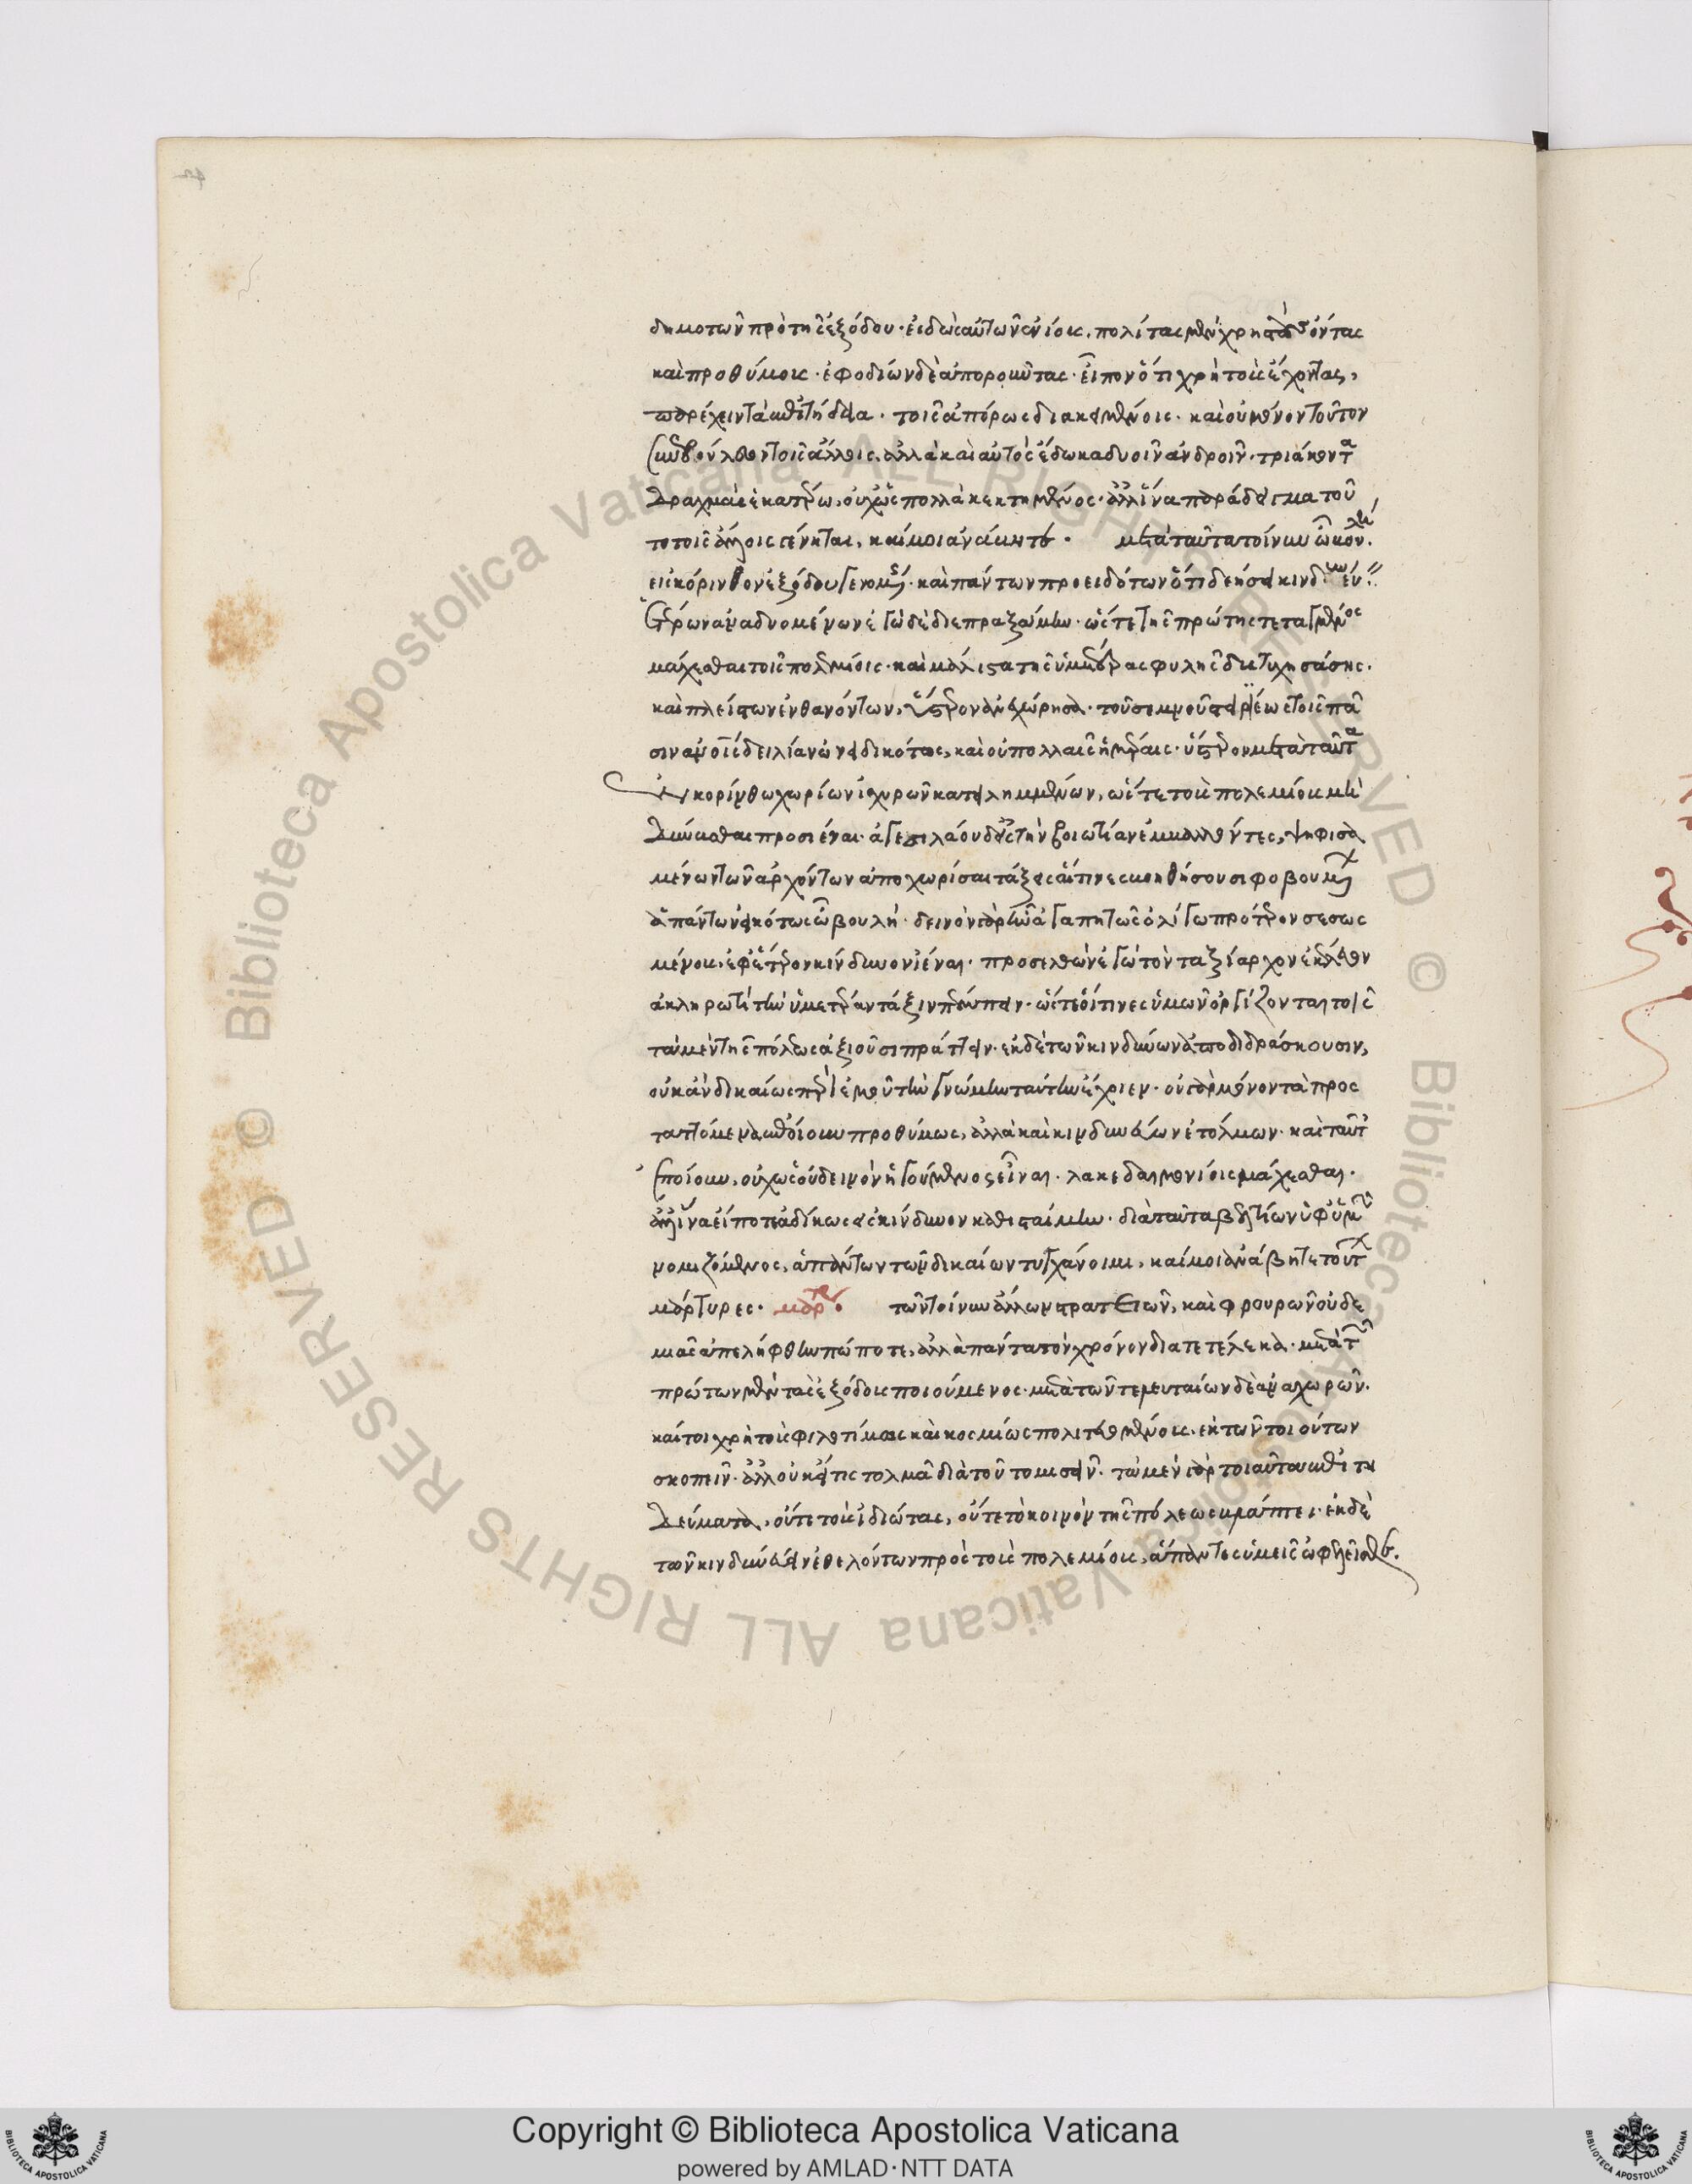 δημοτῶν πρὸ τῆς ἐξόδου· εἰδὼς αὐτῶν ἐνίους, πολίτας μὲν χρηστοὺς ὄντας
καὶ προθύμους· ἐφοδίων δὲ ἀποροῦντας· εἶπον ὅτι χρὴ τοὺς ἔχοντας,
παρέχειν τὰ ἐπιτήδεια· τοῖς ἀπόρως διακειμένοις· καὶ οὐ μόνον τοῦτον
συνεβούλευον τοῖς ἄλλοις, ἀλλὰ καὶ αὐτὸς ἔδωκα δυοῖν ἀνδροῖν· τριάκοντα
δραχμὰς ἑκατέρω, οὐχ ὡς πολλὰ κεκτημένος· ἀλλ' ἵνα παράδειγμα τοῦ
το τοῖς ἄλλοις γένηται, καί μοι ἀνάβητε· μετὰ ταῦτα τοίνυν ὦ
εἰς κόρινθον ἐξόδου γενομένης· καὶ πάντων προειδότων ὅτι δεήσει κινδυνεύειν
ἑτέρων ἀναδυομένων ἐγὼ δὲ διεπραξάμην· ὥστε τῆς πρώτης τεταγμένος
μάχεσθαι τοῖς πολεμίοις· καὶ μάλιστα τῆς ἡμετέρας φυλῆς δυστυχησάσης·
καὶ πλείστων ἐνθανόντων, ὕστερον ἀνεχώρησα· τοῦ σεμνοῦ στειριέως τοῖς πᾶ
σιν ἀνοις δειλίαν ὠνειδικότος, καὶ οὐ πολλαῖς ἡμέραις· ὕστερον μετὰ ταῦτα
ἐν κορίνθω χωρίων ἰσχυρῶν κατειλημμένων, ὥστε τοὺς πολεμίους μὴ
δύνασθαι προσιέναι· ἀγεσιλάου δ' εἰς τὴν βοιωτίαν ἐμβαλόντες, ψηφισα
μένων τῶν ἀρχόντων ἀποχωρίσαι τάξεις αἵτινες βοηθήσουσι φοβουμένων
ἁπάντων εἰκότως ὦ βουλή· δεινὸν γὰρ ἦν ἀγαπητῶς ὀλίγω πρότερον σεσωσ
μένους, ἐφ' ἕτερον κίνδυνον ἰέναι· προσελθὼν ἐγὼ τὸν ταξίαρχον ἐκέλευον
ἀκληρωτὶ τὴν ὑμετέραν τάξιν πέμπειν· ὥστε οἵτινες ὑμῶν ὀργίζονται τοῖς
τὰ μὲν τῆς πόλεως ἀξιοῦσι πράττειν· ἐκ δὲ τῶν κινδύνων ἀποδιδράσκουσιν,
οὐκ ἂν δικαίως περὶ ἐμοῦ τὴν γνώμην ταύτην ἔχοιεν· οὐ γὰρ μόνον τὰ προς
ταττόμενα ἐποίουν προθύμως, ἀλλὰ καὶ κινδυνεύων ἐτόλμων· καὶ ταῦτ'
ἐποίουν, οὐχ ὡς οὐ δεινὸν ἡγούμενος εἶναι· λακεδαιμονίοις μάχεσθαι·
ἀλλ' ἵνα εἴ ποτε ἀδίκως εἰς κίνδυνον καθισταίμην· διὰ ταῦτα βελτίων ὑφ' ὑμῶν
νομιζόμενος, ἁπάντων τῶν δικαίων τυγχάνοιμι, καί μοι ἀνάβητε τούτων
μάρτυρες· μάρτυρες· τῶν τοίνυν ἄλλων στρατειῶν, καὶ φρουρῶν οὐδε
μιᾶς ἀπελήφθην πώποτε, ἀλλὰ πάντα τὸν χρόνον διατετέλεκα· μετὰ τῶν
πρώτων μὲν τὰς ἐξόδους ποιούμενος· μετὰ τῶν τελευταίων δὲ ἀναχωρῶν·
καίτοι χρὴ τοὺς φιλοτίμως καὶ κοσμίως πολιτευομένους, ἐκ τῶν τοιούτων
σκοπεῖν· ἀλλ' οὐκ εἴ τις τολμᾶ διὰ τοῦτο μισεῖν· τὰ μὲν γὰρ τοιαῦτα ἐπιτη
δεύματα, οὔτε τοὺς ἰδιώτας, οὔτε τὸ κοινὸν τῆς πόλεως βλάπτει· ἐκ δὲ
τῶν κινδυνεύειν ἐθελόντων πρὸς τοὺς πολεμίους, ἅπαντες ὑμεῖς ὠφελεῖσθε.
Copyright © Biblioteca Apostolica Vaticana
powered by AMLAD·NTT DATA